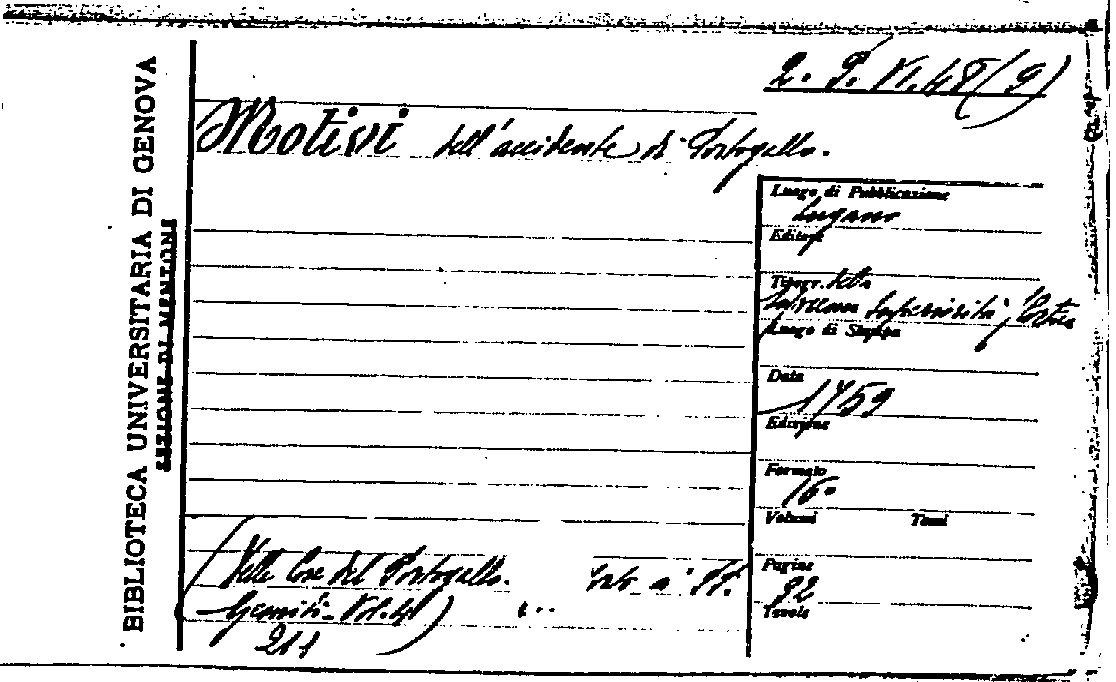 2. P. VI. 48 (9)
Motivi dell'accidente di Portogallo.
BIBLIOTECA UNIVERSITARIA DI GENOVA
SEZIONE DI MENTONE
Luogo di Pubblicazione
Lugano
Editore
Tipogr. della
Suprema Superiorità
Luogo di Stampa
Data
1759
Edizione
Formato
16°
Volumi Tomi
Pagine
92
Tavole
(Delle Cose del Portogallo.
Gesuiti - Vol. 4)
211